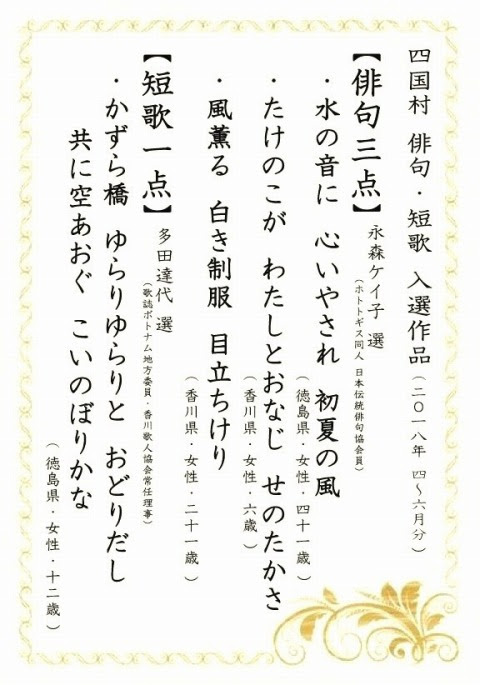 四国村 俳句・短歌 入選作品(二〇一八年 四～六月分)
【俳句三点】 永森ケイ子 選
(ホトトギス同人 日本伝統俳句協会員)
・水の音に 心いやされ 初夏の風
(徳島県・女性・四十一歳)
・たけのこが わたしとおなじ せのたかさ
(香川県・女性・六歳)
・風薫る 白き制服 目立ちけり
(香川県・女性・二十一歳)
【短歌一点】 多田達代 選
(歌誌ポトナム地方委員・香川歌人協会常任理事)
・かずら橋 ゆらりゆらりと おどりだし
共に空あおぐ こいのぼりかな
(徳島県・女性・十二歳)